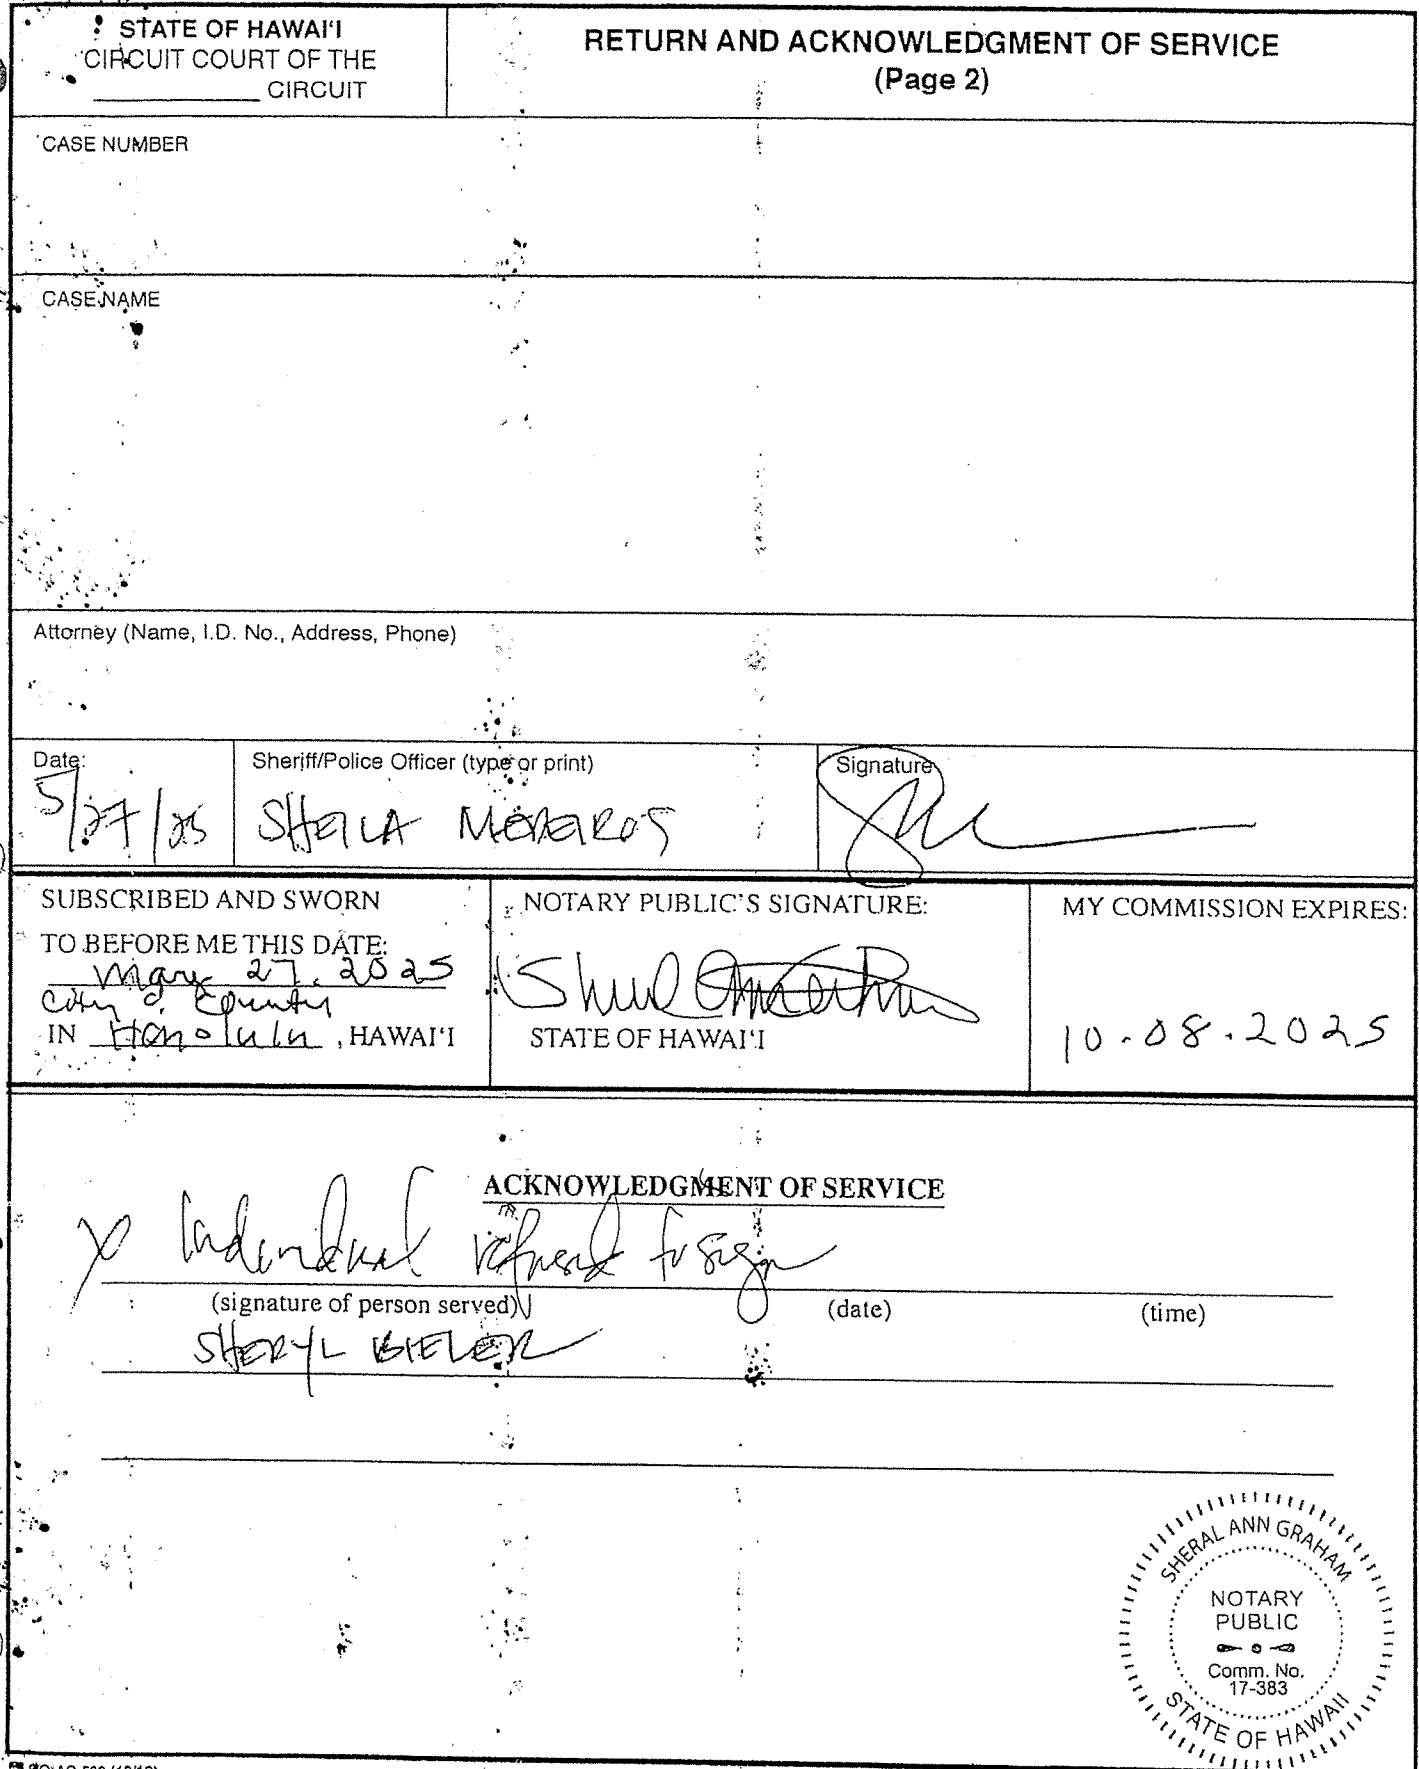 STATE OF HAWAI'I
CIRCUIT COURT OF THE
____________ CIRCUIT
RETURN AND ACKNOWLEDGMENT OF SERVICE
(Page 2)
CASE NUMBER
CASE NAME
Attorney (Name, I.D. No., Address, Phone)
Date:
5/27/25
Sheriff/Police Officer (type or print)
SHEILA MEDEIROS
Signature
SUBSCRIBED AND SWORN
TO BEFORE ME THIS DATE:
May 27, 2025
City & County
IN Honolulu, HAWAI'I
NOTARY PUBLIC'S SIGNATURE:
STATE OF HAWAI'I
MY COMMISSION EXPIRES:
10.08.2025
ACKNOWLEDGMENT OF SERVICE
X Individual refused to sign
(signature of person served) (date) (time)
SHERYL BIELER
SHERAL ANN GRAHAM
NOTARY
PUBLIC
Comm. No.
17-383
STATE OF HAWAII